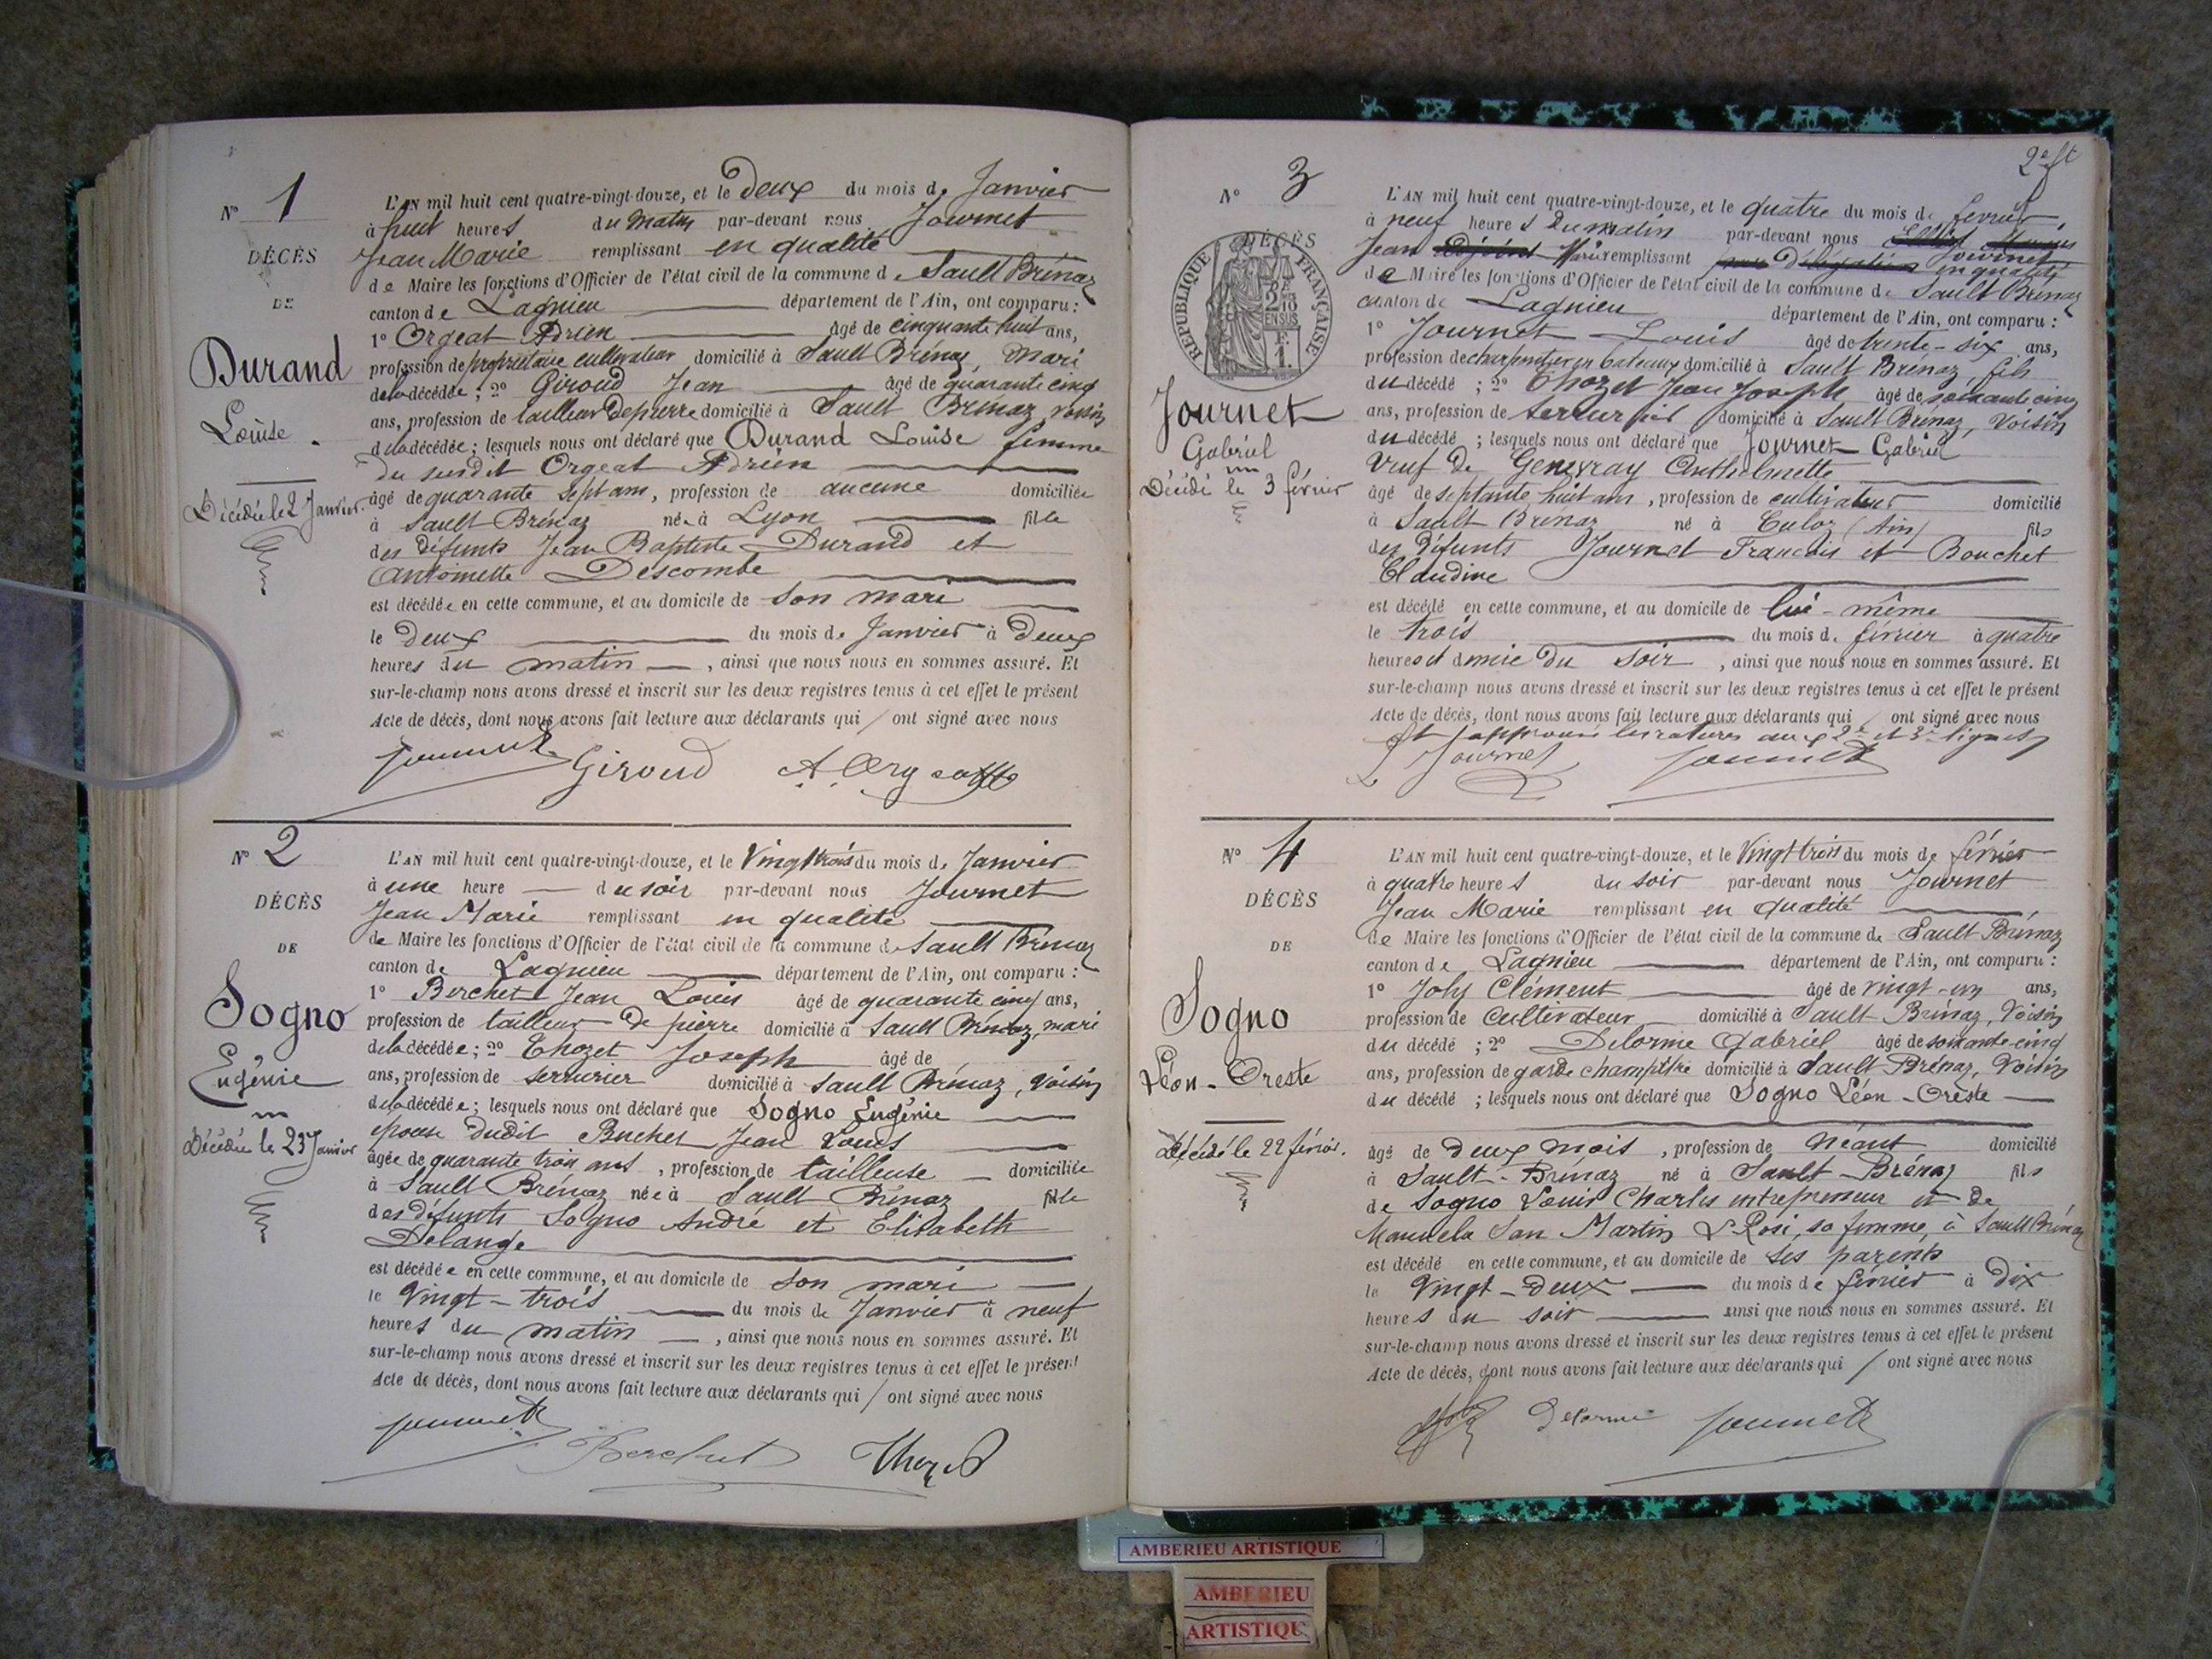 N° 1
DÉCÈS
DE
Durand
Louise
Décédée le 2 Janvier
L'AN mil huit cent quatre-vingt-douze, et le deux du mois de Janvier
à huit heures du matin par-devant nous Journet
Jean Marie remplissant en qualité
de Maire les fonctions d'Officier de l'état civil de la commune de Sault Brénaz
canton de Lagnieu département de l'Ain, ont comparu :
1° Orgeat Adrien âgé de cinquante huit ans,
profession de propriétaire cultivateur domicilié à Sault Brénaz, mari
de la décédée ; 2° Giroud Jean âgé de quarante cinq
ans, profession de tailleur de pierre domicilié à Sault Brénaz, voisin
de la décédée ; lesquels nous ont déclaré que Durand Louise femme
du susdit Orgeat Adrien
âgé de quarante sept ans, profession de aucune domiciliée
à Sault Brénaz née à Lyon fille
des défunts Jean Baptiste Durand et
Antoinette Descombe
est décédée en cette commune, et au domicile de son mari
le deux du mois de Janvier à deux
heures du matin, ainsi que nous nous en sommes assuré. Et
sur-le-champ nous avons dressé et inscrit sur les deux registres tenus à cet effet le présent
Acte de décès, dont nous avons fait lecture aux déclarants qui / ont signé avec nous
Journet Giroud
N° 2
DÉCÈS
DE
Sogno
Eugénie
Décédée le 23 Janvier
L'AN mil huit cent quatre-vingt-douze, et le Vingt trois du mois de Janvier
à une heure du soir par-devant nous Journet
Jean Marie remplissant en qualité
de Maire les fonctions d'Officier de l'état civil de la commune de Sault Brénaz
canton de Lagnieu département de l'Ain, ont comparu :
1° Berchet Jean Louis âgé de quarante cinq ans,
profession de tailleur de pierre domicilié à Sault Brénaz, mari
de la décédée ; 2° Thozet Joseph âgé de
ans, profession de serrurier domicilié à Sault Brénaz, voisin
de la décédée ; lesquels nous ont déclaré que Sogno Eugénie
épouse dudit Buchet Jean Louis
âgée de quarante trois ans, profession de tailleuse domiciliée
à Sault Brénaz née à Sault Brénaz fille
des défunts Sogno André et Elisabeth
Delange
est décédée en cette commune, et au domicile de son mari
le Vingt-trois du mois de Janvier à neuf
heures du matin, ainsi que nous nous en sommes assuré. Et
sur-le-champ nous avons dressé et inscrit sur les deux registres tenus à cet effet le présent
Acte de décès, dont nous avons fait lecture aux déclarants qui / ont signé avec nous
Journet Berchet Thozet
N° 3
DÉCÈS
RÉPUBLIQUE FRANÇAISE
Journet
Gabriel
Décédé le 3 février
L'AN mil huit cent quatre-vingt-douze, et le quatre du mois de février
à neuf heures du matin par-devant nous Journet
Jean Marie remplissant en qualité
de Maire les fonctions d'Officier de l'état civil de la commune de Sault Brénaz
canton de Lagnieu département de l'Ain, ont comparu :
1° Journet Louis âgé de trente-six ans,
profession de charpentier en bateaux domicilié à Sault Brénaz, fils
du décédé ; 2° Thozet Jean Joseph âgé de soixante cinq
ans, profession de serrurier domicilié à Sault Brénaz, voisin
du décédé ; lesquels nous ont déclaré que Journet Gabriel
veuf de Genevray Anthelmette
âgé de septante huit ans, profession de cultivateur domicilié
à Sault Brénaz né à Culoz (Ain) fils
des défunts Journet François et Bouchet
Claudine
est décédé en cette commune, et au domicile de lui-même
le trois du mois de février à quatre
heures et demie du soir, ainsi que nous nous en sommes assuré. Et
sur-le-champ nous avons dressé et inscrit sur les deux registres tenus à cet effet le présent
Acte de décès, dont nous avons fait lecture aux déclarants qui / ont signé avec nous
et approuvé les ratures aux 2e et 3e lignes
Journet Journet
N° 4
DÉCÈS
DE
Sogno
Léon-Oreste
Décédé le 22 février.
L'AN mil huit cent quatre-vingt-douze, et le Vingt trois du mois de février
à quatre heures du soir par-devant nous Journet
Jean Marie remplissant en qualité
de Maire les fonctions d'Officier de l'état civil de la commune de Sault Brénaz
canton de Lagnieu département de l'Ain, ont comparu :
1° Joly Clément âgé de vingt-un ans,
profession de cultivateur domicilié à Sault Brénaz, voisin
du décédé ; 2° Delorme Gabriel âgé de soixante-cinq
ans, profession de garde champêtre domicilié à Sault Brénaz, voisin
du décédé ; lesquels nous ont déclaré que Sogno Léon-Oreste
âgé de deux mois, profession de Néant domicilié
à Sault-Brénaz né à Sault-Brénaz fils
de Sogno Louis Charles entrepreneur et de
Manuela San Martin, sa femme, à Sault Brénaz
est décédé en cette commune, et au domicile de ses parents
le Vingt-deux du mois de février à dix
heures du soir ainsi que nous nous en sommes assuré. Et
sur-le-champ nous avons dressé et inscrit sur les deux registres tenus à cet effet le présent
Acte de décès, dont nous avons fait lecture aux déclarants qui / ont signé avec nous
Delorme Journet
AMBERIEU ARTISTIQUE
AMBERIEU
ARTISTIQU